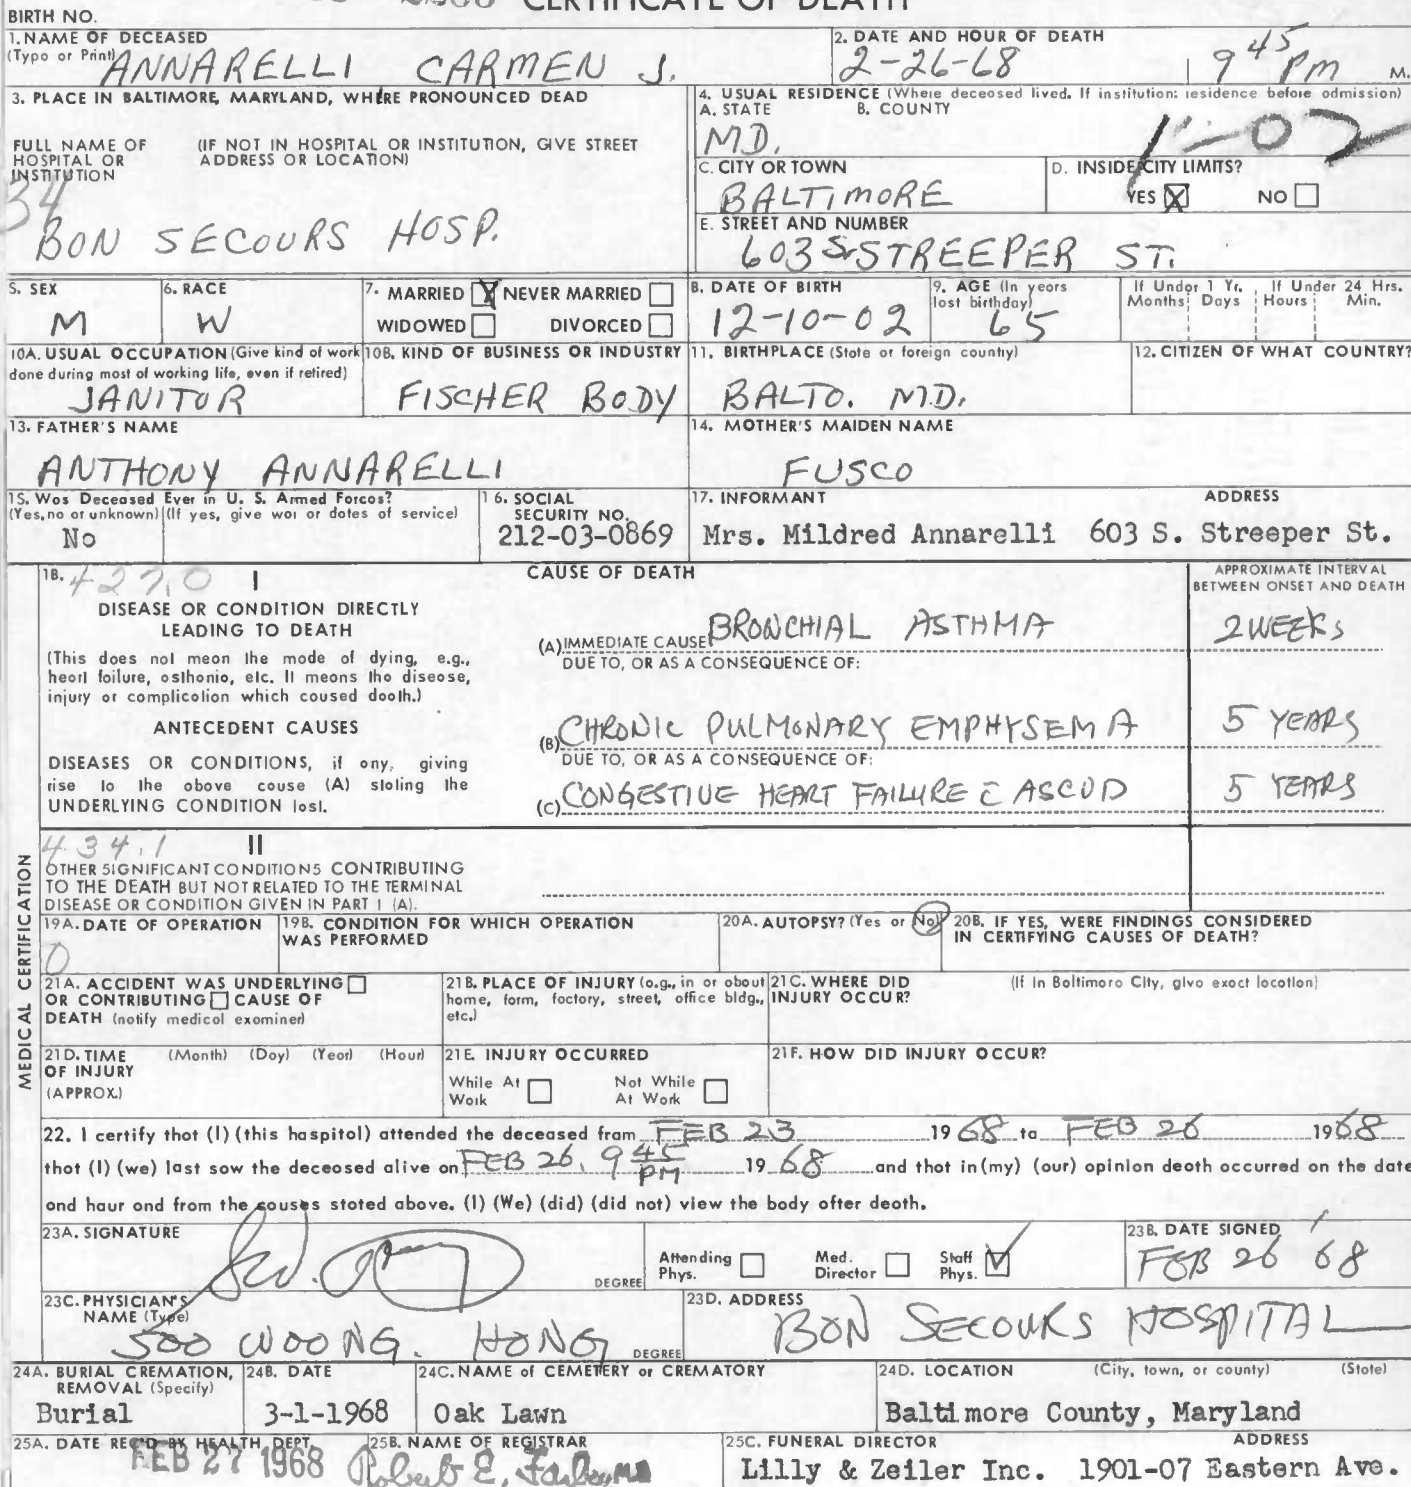 CERTIFICATE OF DEATH
BIRTH NO.
1. NAME OF DECEASED
(Type or Print) ANNARELLI CARMEN J.
2. DATE AND HOUR OF DEATH
2-26-68 9 45 PM M.
3. PLACE IN BALTIMORE, MARYLAND, WHERE PRONOUNCED DEAD
FULL NAME OF HOSPITAL OR INSTITUTION
(IF NOT IN HOSPITAL OR INSTITUTION, GIVE STREET ADDRESS OR LOCATION)
34
BON SECOURS HOSP.
4. USUAL RESIDENCE (Where deceased lived. If institution: residence before admission)
A. STATE B. COUNTY
MD. 1-02
C. CITY OR TOWN
BALTIMORE
D. INSIDE CITY LIMITS?
YES X NO
E. STREET AND NUMBER
603 S. STREEPER ST.
5. SEX
M
6. RACE
W
7. MARRIED X NEVER MARRIED
WIDOWED DIVORCED
8. DATE OF BIRTH
12-10-02
9. AGE (In years last birthday)
65
If Under 1 Yr. If Under 24 Hrs.
Months Days Hours Min.
10A. USUAL OCCUPATION (Give kind of work done during most of working life, even if retired)
JANITOR
10B. KIND OF BUSINESS OR INDUSTRY
FISCHER BODY
11. BIRTHPLACE (State or foreign country)
BALTO. MD.
12. CITIZEN OF WHAT COUNTRY?
13. FATHER'S NAME
ANTHONY ANNARELLI
14. MOTHER'S MAIDEN NAME
FUSCO
15. Was Deceased Ever in U. S. Armed Forces?
(Yes, no or unknown) (If yes, give war or dates of service)
No
16. SOCIAL SECURITY NO.
212-03-0869
17. INFORMANT ADDRESS
Mrs. Mildred Annarelli 603 S. Streeper St.
18. 422,0 I
CAUSE OF DEATH
APPROXIMATE INTERVAL BETWEEN ONSET AND DEATH
DISEASE OR CONDITION DIRECTLY LEADING TO DEATH
(This does not mean the mode of dying, e.g., heart failure, asthenia, etc. It means the disease, injury or complication which caused death.)
(A) IMMEDIATE CAUSE BRONCHIAL ASTHMA 2 WEEKS
DUE TO, OR AS A CONSEQUENCE OF:
ANTECEDENT CAUSES
DISEASES OR CONDITIONS, if any, giving rise to the above cause (A) stating the UNDERLYING CONDITION last.
(B) CHRONIC PULMONARY EMPHYSEMA 5 YEARS
DUE TO, OR AS A CONSEQUENCE OF:
(C) CONGESTIVE HEART FAILURE C̄ ASCVD 5 YEARS
434.1 II
OTHER SIGNIFICANT CONDITIONS CONTRIBUTING TO THE DEATH BUT NOT RELATED TO THE TERMINAL DISEASE OR CONDITION GIVEN IN PART I (A).
MEDICAL CERTIFICATION
19A. DATE OF OPERATION
0
19B. CONDITION FOR WHICH OPERATION WAS PERFORMED
20A. AUTOPSY? (Yes or No)
20B. IF YES, WERE FINDINGS CONSIDERED IN CERTIFYING CAUSES OF DEATH?
21A. ACCIDENT WAS UNDERLYING OR CONTRIBUTING CAUSE OF DEATH (notify medical examiner)
21B. PLACE OF INJURY (e.g., in or about home, farm, factory, street, office bldg., etc.)
21C. WHERE DID INJURY OCCUR?
(If in Baltimore City, give exact location)
21D. TIME OF INJURY (APPROX.)
(Month) (Day) (Year) (Hour)
21E. INJURY OCCURRED
While At Work Not While At Work
21F. HOW DID INJURY OCCUR?
22. I certify that (I) (this hospital) attended the deceased from FEB 23 1968 to FEB 26 1968
that (I) (we) last saw the deceased alive on FEB 26, 9 45 PM 1968 and that in (my) (our) opinion death occurred on the date
and hour and from the causes stated above. (I) (We) (did) (did not) view the body after death.
23A. SIGNATURE
DEGREE
Attending Phys. Med. Director Staff Phys.
23B. DATE SIGNED
FEB 26 '68
23C. PHYSICIAN'S NAME (Type)
SOO WOONG. HONG DEGREE
23D. ADDRESS
BON SECOURS HOSPITAL
24A. BURIAL CREMATION, REMOVAL (Specify)
Burial
24B. DATE
3-1-1968
24C. NAME of CEMETERY or CREMATORY
Oak Lawn
24D. LOCATION (City, town, or county) (State)
Baltimore County, Maryland
25A. DATE REC'D BY HEALTH DEPT.
FEB 27 1968
25B. NAME OF REGISTRAR
Robert E. Farber, MD
25C. FUNERAL DIRECTOR ADDRESS
Lilly & Zeiler Inc. 1901-07 Eastern Ave.